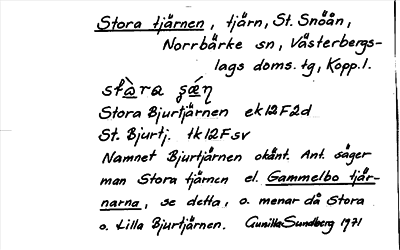 Stora tjärnen, tjärn, St. Snöån,
Norrbärke sn, Västerbergs-
lags doms. tg, Kopp. l.
Stora Bjurtjärnen ek 12F2d
St. Bjurtj. tk 12F sv
Namnet Bjurtjärnen okänt. Ant. säger
man Stora tjärnen el. Gammelbo tjär-
narna, se detta, o. menar då Stora
o. Lilla Bjurtjärnen. Gunilla Sundberg 1971